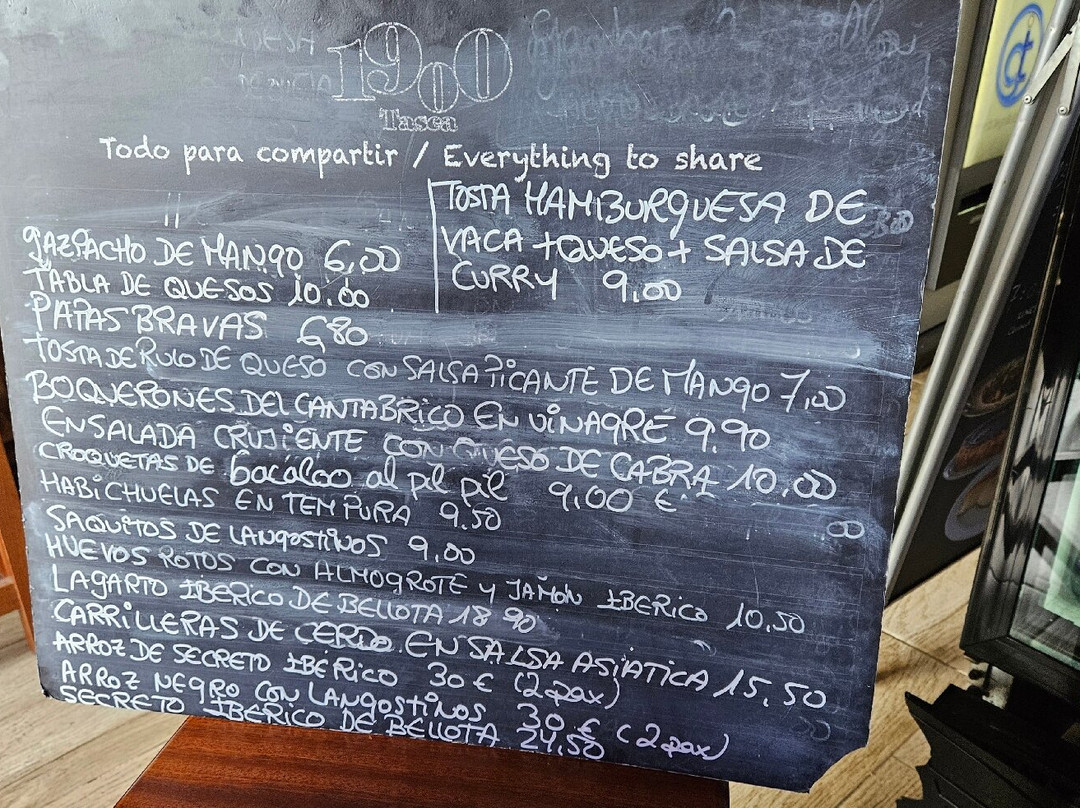 1900
Tasca
Todo para compartir / Everything to share
"
TOSTA HAMBURGUESA DE
VACA + QUESO + SALSA DE
CURRY 9,00
GAZPACHO DE MANGO 6,00
TABLA DE QUESOS 10.00
PAPAS BRAVAS 6,80
TOSTA DE RULO DE QUESO CON SALSA PICANTE DE MANGO 7,00
BOQUERONES DEL CANTABRICO EN VINAGRE 9,90
ENSALADA CRUJIENTE CON QUESO DE CABRA 10,00
CROQUETAS DE bacalao al pil pil 9,00 €
HABICHUELAS EN TEMPURA 9.50
SAQUITOS DE LANGOSTINOS 9,00
HUEVOS ROTOS CON ALMOGROTE Y JAMÓN IBERICO 10,50
LAGARTO IBERICO DE BELLOTA 18 90
CARRILLERAS DE CERDO EN SALSA ASIATICA 15,50
ARROZ DE SECRETO IBERICO 30 € (2 pax)
ARROZ NEGRO CON LANGOSTINOS 30 € (2 pax)
SECRETO IBERICO DE BELLOTA 24,50